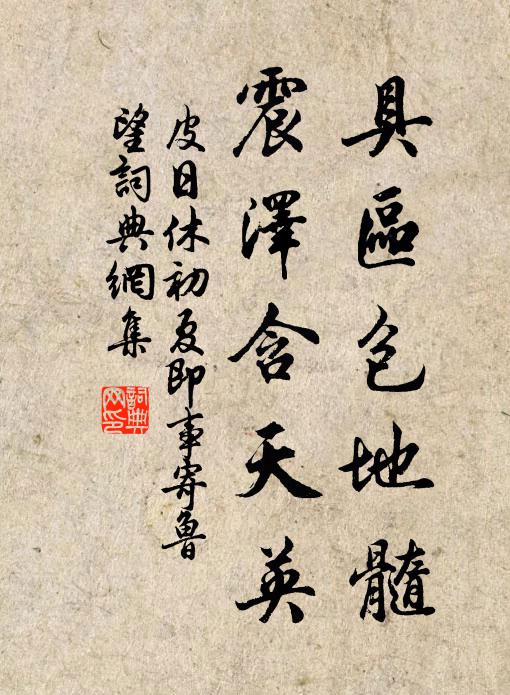 具區包地髓
震澤含天英
皮日休初夏即事寄魯
望詞典網集
詞典
网印